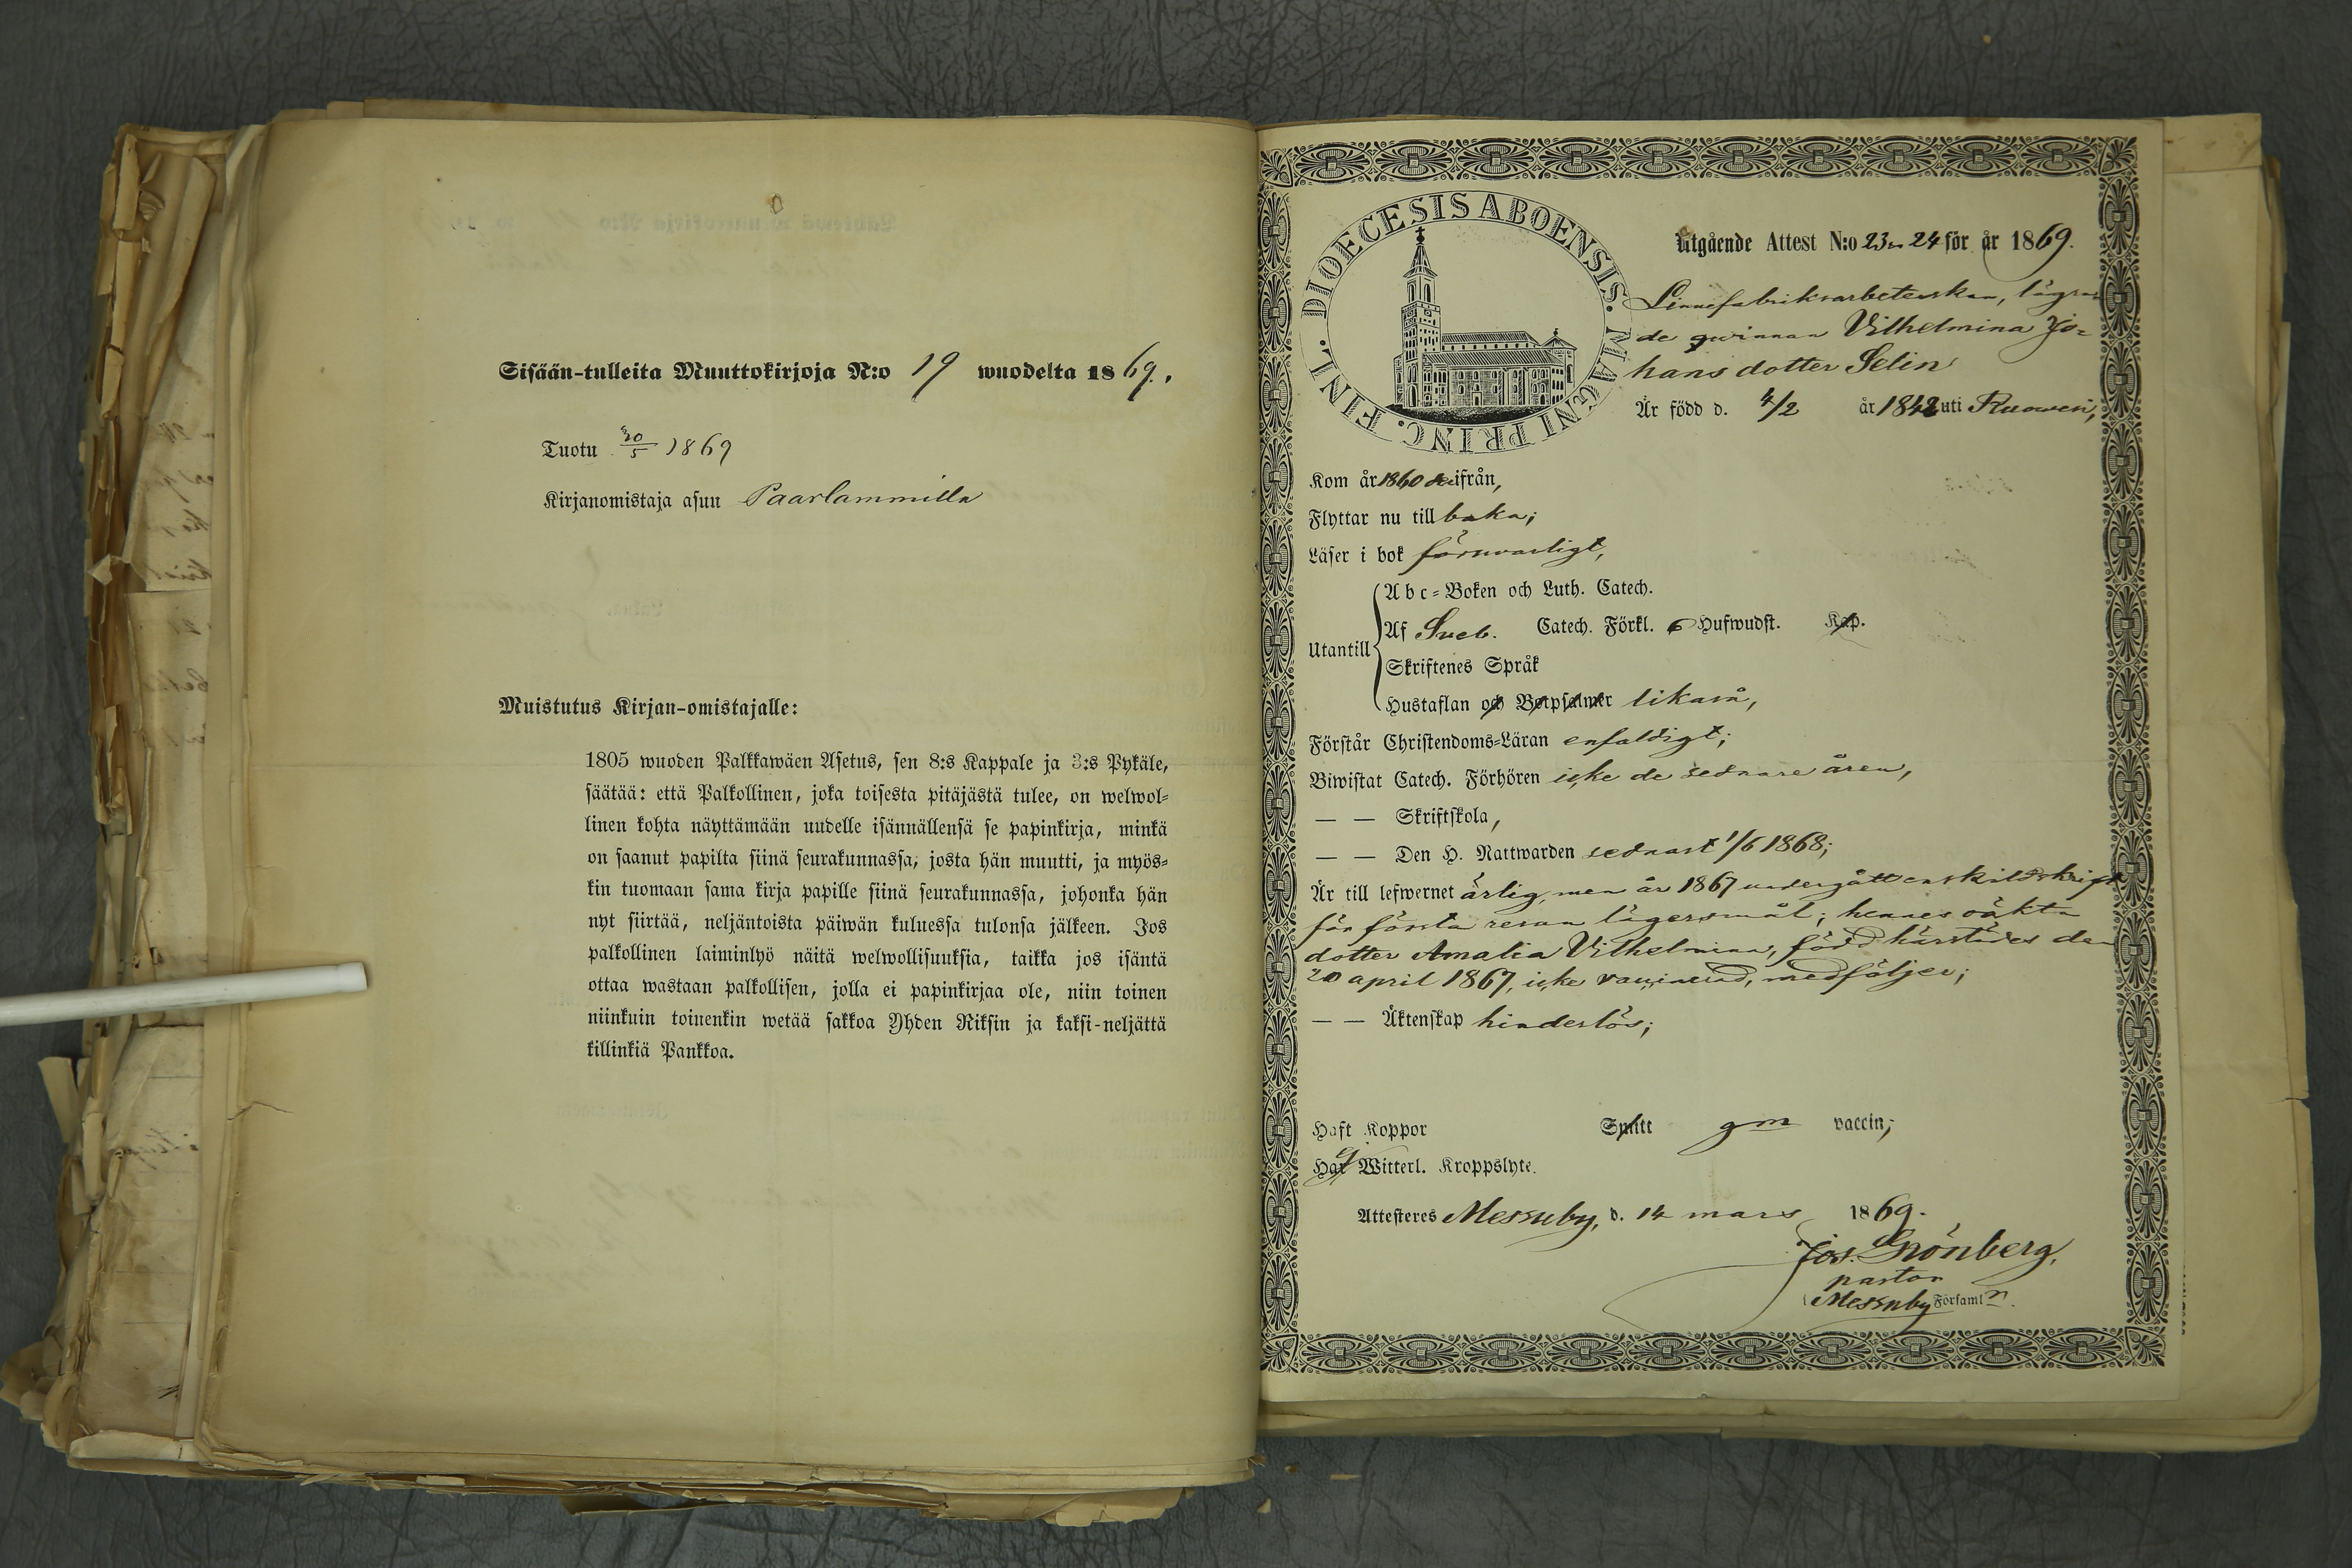 Sisään-tulleita Muuttokirjoja N:o 19 wuodelta 1869.
Tuotu 30/5 1869
Kirjanomistaja asuu Paarlammilla
Muistutus Kirjan-omistajalle:
1805 wuoden Palkkawäen Asetus, sen 8:s Kappale ja 3:s Pykäle,
säätää: että Palkollinen, joka toisesta pitäjästä tulee, on welwol-
linen kohta näyttämään uudelle isännällensä se papinkirja, minkä
on saanut papilta siinä seurakunnassa, josta hän muutti, ja myös-
kin tuomaan sama kirja papille siinä seurakunnassa, johonka hän
nyt siirtää, neljäntoista päiwän kuluessa tulonsa jälkeen. Jos
palkollinen laiminlyö näitä welwollisuuksia, taikka jos isäntä
ottaa wastaan palkollisen, jolla ei papinkirjaa ole, niin toinen
niinkuin toinenkin wetää sakkoa Yhden Riksin ja kaksi-neljättä
killinkiä Pankkoa.
DIOECESIS ABOENSIS. MAGNI PRINC. FINL.
Utgående Attest N:o 23 24 för år 1869.
Linnefabriksarbeterskan, lägra-
de qwinnan Vilhelmina Jo-
hans dotter Selin
Är född d. 4/2 år 1842 uti Ruowesi,
Kom år 1860 ifrån,
Flyttar nu till baka;
Läser i bok försvarligt,
Utantill
Abc-Boken och Luth. Catech.
Af Sveb. Catech. Förkl. 6 Hufwudst. Kap.
Skriftenes Språk
Hustaflan och Botpsalmer likaså,
Förstår Christendoms-Läran enfaldigt;
Biwistat Catech. Förhören icke de sednare åren,
— — Skriftskola,
— — Den H. Nattwarden sednast 1/6 1868;
Är till lefwernet ärlig, men år 1867 undergått enskild skrift
för första resan lägersmål; hennes oäkta
dotter Amalia Vilhelmina, född härstädes den
20 april 1867, icke vaccinerad, medföljer;
— — Äktenskap hinderlös;
Haft Koppor Smitt gm vaccin;
Har Witterl. Kroppslyte.
Attesteres Messuby, d. 14 mars 1869.
Jos. Grönberg,
pastor
Messuby Församl n.